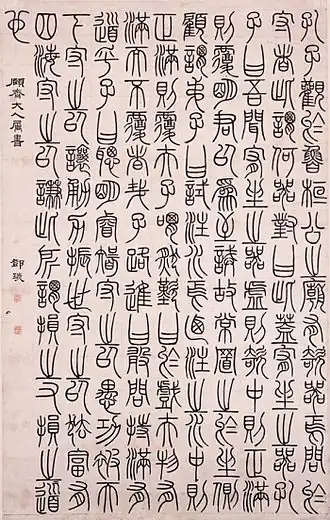 孔子觀於魯桓公之廟有欹器焉問於
守者此謂何器對曰此蓋宥坐之器孔
子曰吾聞宥坐之器虛則欹中則正滿
則覆明君以爲至誡故常置之於坐側
顧謂弟子曰試注水焉迺注之水中則
正滿則覆夫子喟然歎曰於戲夫物有
滿而不覆者哉子路進曰敢問持滿有
道乎子曰聰明睿智守之以愚功被天
下守之以讓勇力振世守之以怯富有
四海守之以謙此所謂損之又損之道
也
願齋大人屬書
鄧琰